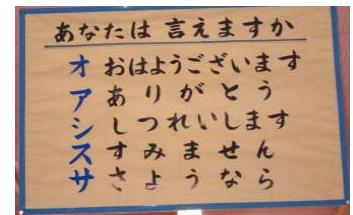 あなたは 言えますか
オ おはようございます
ア ありがとう
シ しつれいします
ス すみません
サ さようなら